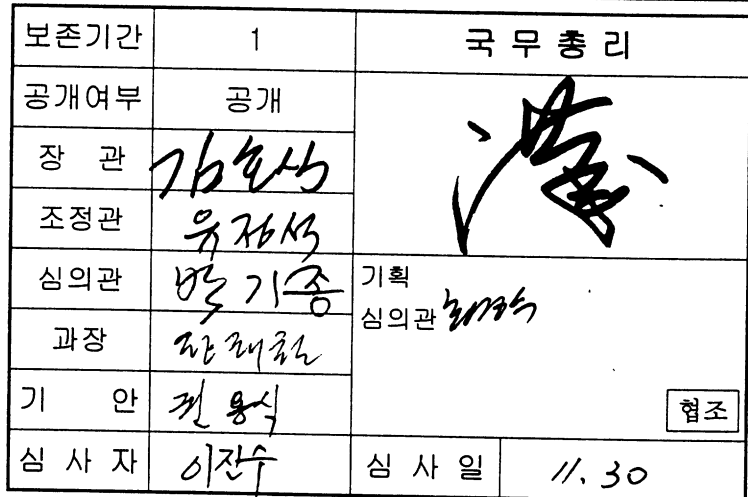 보존기간 1 국무총리
공개여부 공개
장 관 김호식
조정관 유정석
심의관 박기종
기획
심의관
과장
기 안 전용식
협조
심사자 이진수 심사일 11. 30